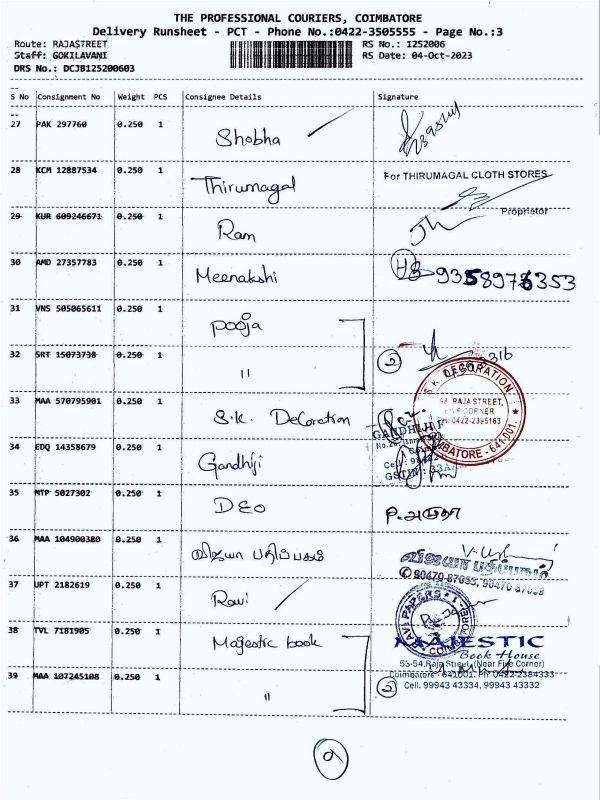 THE PROFESSIONAL COURIERS, COIMBATORE
Delivery Runsheet - PCT - Phone No.:0422-3505555 - Page No.:3
Route: RAJASTREET RS No.: 1252006
Staff: GOKILAVANI RS Date: 04-Oct-2023
DRS No.: DCJB125200603
S No Consignment No Weight PCS Consignee Details Signature
27 PAK 297760 0.250 1 Shobha
28 KCM 12887534 0.250 1 Thirumagal For THIRUMAGAL CLOTH STORES
Proprietor
29 KUR 609246671 0.250 1 Ram
30 AMD 27357783 0.250 1 Meenakshi
31 VNS 505065611 0.250 1 Pooja
32 SRT 15073738 0.250 1 " 2
33 MAA 570795901 0.250 1 S.K. Decoration
S.K. DECORATION
RAJA STREET,
FIVE CORNER
PH: 0422-2395163
COIMBATORE - 641 001.
34 EDQ 14358679 0.250 1 Gandhiji
GANDHIJI
35 MTP 5027302 0.250 1 DEO P. அமுதா
36 MAA 104900380 0.250 1 விஜயா பதிப்பகம்
விஜயா பதிப்பகம்
37 UPT 2182619 0.250 1 Ravi
RAVI PAPERS
38 TVL 7181905 0.250 1 Majestic book
MAJESTIC
Book House
53-54, Raja Street, (Near Five Corner)
39 MAA 107245108 0.250 1 " 2
Coimbatore - 641001. Ph: 0422-2384333
Cell: 99943 43334, 99943 43332
9